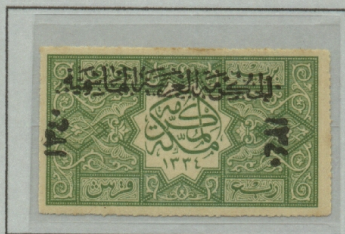 الحكومة العربية الهاشمية
١٣٤٠
١٣٤٠
مكة المكرمة
١٣٣٤
ربع
قرش